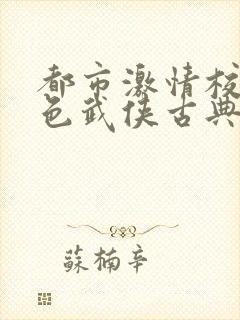 都市激情校
色武侠古典
蘇楠辛